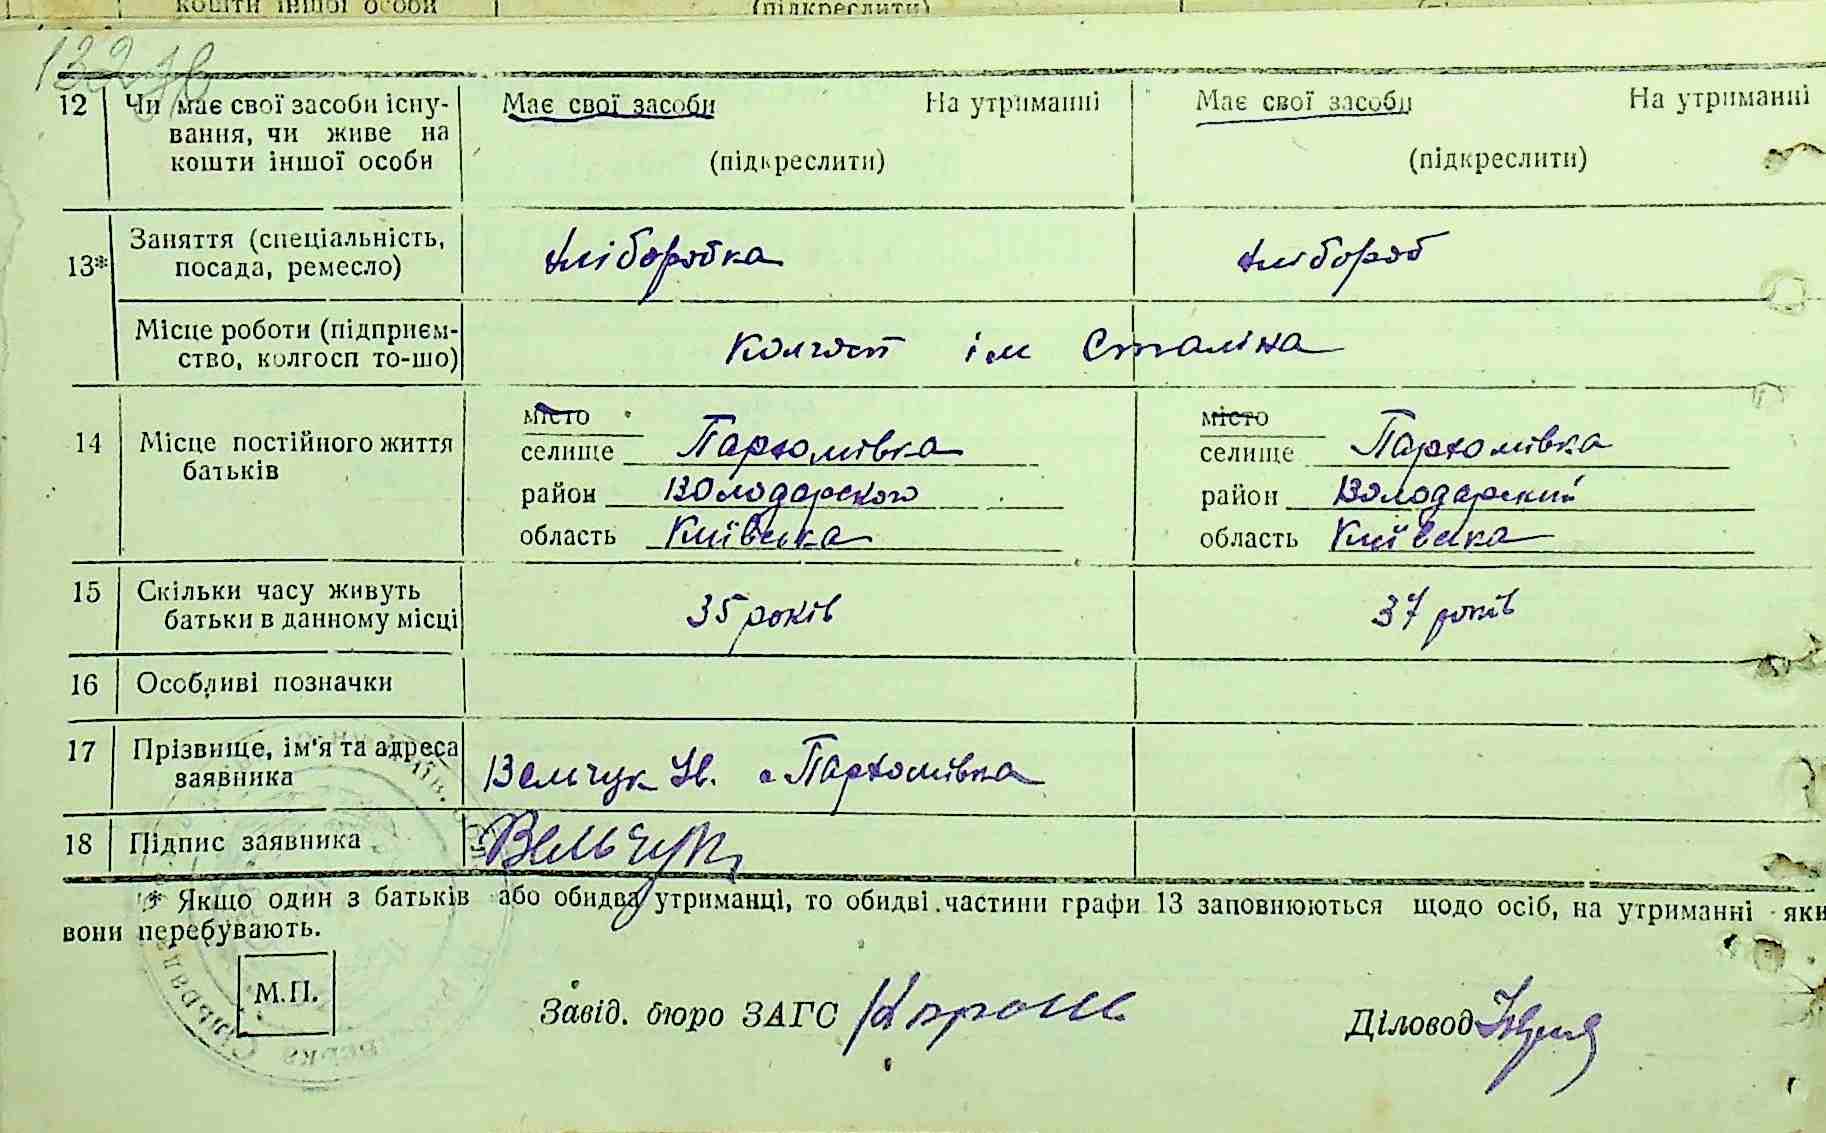 кошти іншої особи (підкреслити)
132
12 Чи має свої засоби існу- Має свої засоби На утриманні Має свої засоби На утриманні
вання, чи живе на
кошти іншої особи (підкреслити) (підкреслити)
13* Заняття (спеціальність,
посада, ремесло) хліборобка хлібороб
Місце роботи (підприєм-
ство, колгосп то-що) Колгосп ім Сталіна
14 Місце постійного життя
батьків
місто місто
селище Пархомівка селище Пархомівка
район Володарского район Володарский
область Київська область Київська
15 Скільки часу живуть
батьки в данному місці 35 років 37 років
16 Особливі позначки
17 Прізвище, ім'я та адреса
заявника Вельчук Ів. с Пархомівка
18 Підпис заявника Вельчук
* Якщо один з батьків або обидва утриманці, то обидві частини графи 13 заповнюються щодо осіб, на утриманні яки
вони перебувають.
М.П.
Завід. бюро ЗАГС
Діловод